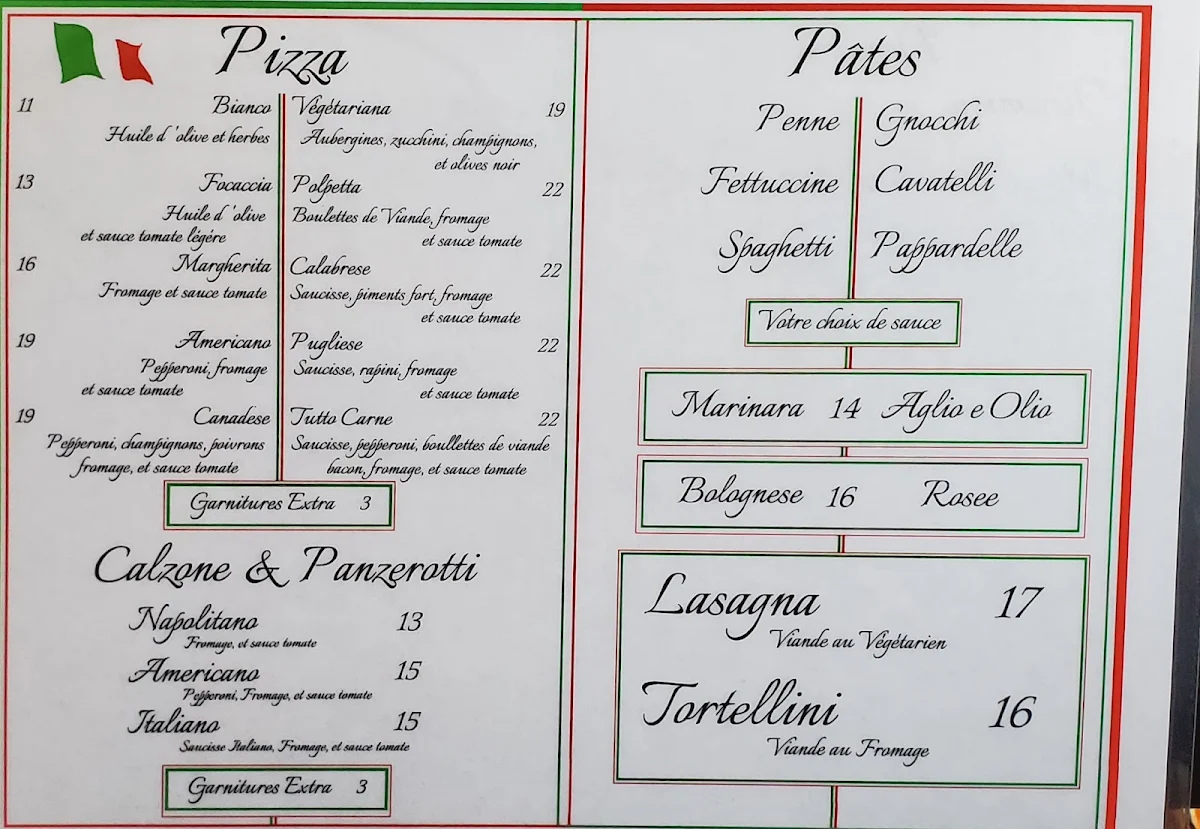 Pizza
11 Bianco
Huile d'olive et herbes
13 Focaccia
Huile d'olive
et sauce tomate légére
16 Margherita
Fromage et sauce tomate
19 Americano
Pepperoni, fromage
et sauce tomate
19 Canadese
Pepperoni, champignons, poivrons
fromage, et sauce tomate
Végétariana 19
Aubergines, zucchini, champignons,
et olives noir
Polpetta 22
Boulettes de Viande, fromage
et sauce tomate
Calabrese 22
Saucisse, piments fort, fromage
et sauce tomate
Pugliese 22
Saucisse, rapini, fromage
et sauce tomate
Tutto Carne 22
Saucisse, pepperoni, boullettes de viande
bacon, fromage, et sauce tomate
Garnitures Extra 3
Calzone & Panzerotti
Napolitano 13
Fromage, et sauce tomate
Americano 15
Pepperoni, Fromage, et sauce tomate
Italiano 15
Saucisse Italiano, Fromage, et sauce tomate
Garnitures Extra 3
Pâtes
Penne Gnocchi
Fettuccine Cavatelli
Spaghetti Pappardelle
Votre choix de sauce
Marinara 14 Aglio e Olio
Bolognese 16 Rosee
Lasagna 17
Viande au Végétarien
Tortellini 16
Viande au Fromage